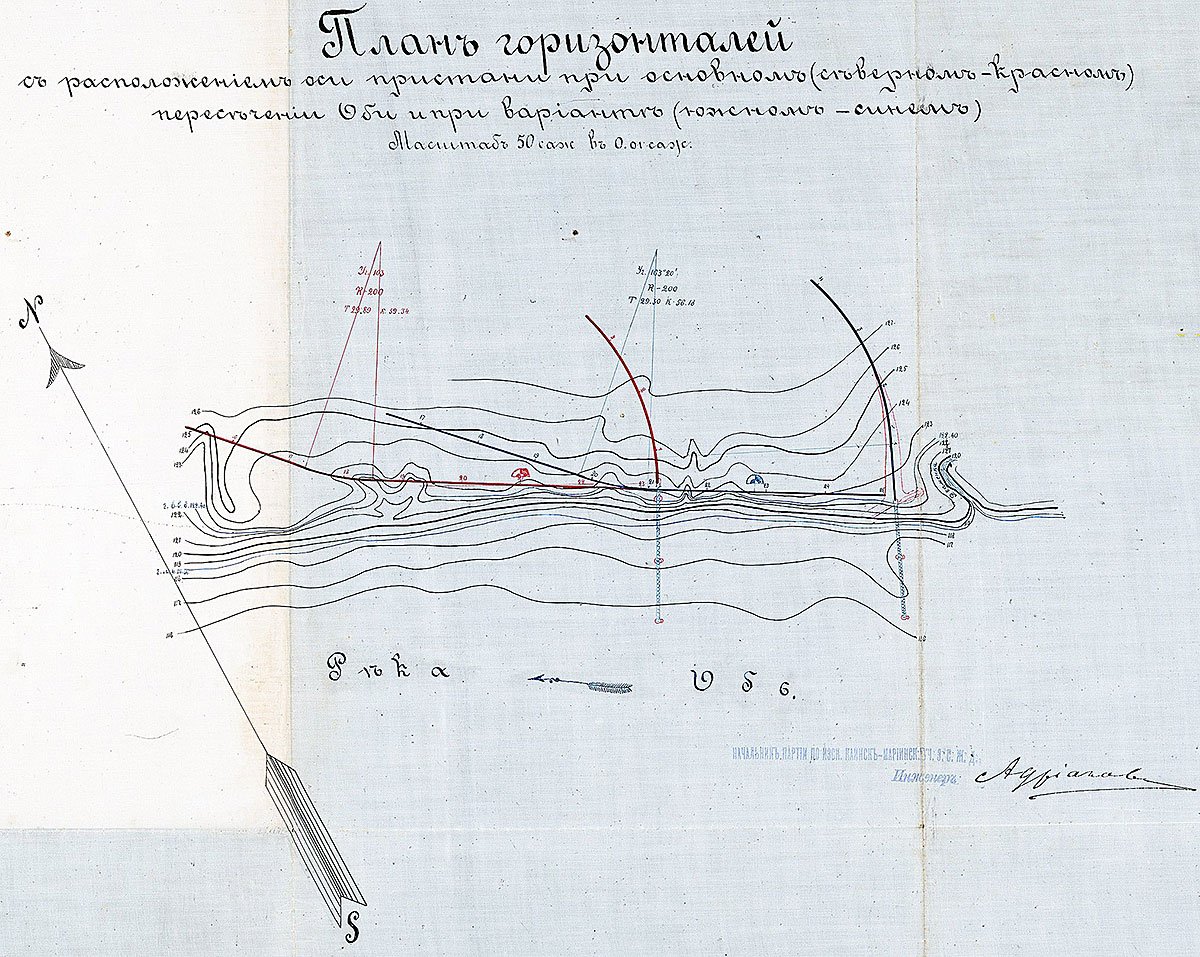 Планъ горизонталей
съ расположеніемъ оси пристани при основномъ (сѣверномъ-красномъ)
пересѣченіи Оби и при варіантѣ (южномъ - синемъ)
Масштабъ 50 саж въ 0.01 саж.
N
Уг. 163
R-200
Т 29.89 К 59.34
Уг. 163°20'
R-200
Т 29.30 К 58.18
127.
126
125
124
123
126
125
124
123
122.40
122
121
120
122
121
120
119
118
117
116
118
117
116
17
18
19
20
20
21
22
23
24
Рѣка Обь.
НАЧАЛЬНИКЪ ПАРТІИ ПО ИЗСЛ. КАИНСКЪ-МАРІИНСК. УЧ. З. С. Ж. Д.
Инженеръ Адріановъ
S